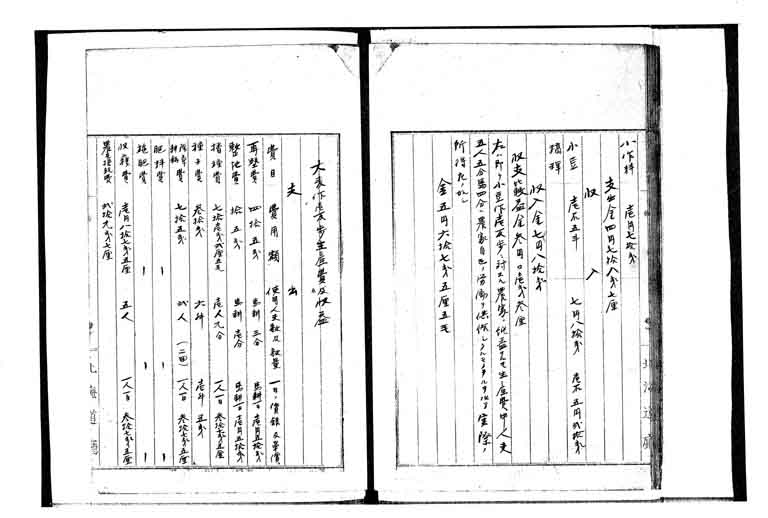 小作料 壱円七拾銭
支出金四円七拾八銭七厘
収入
小豆 壱石五斗 七円八拾銭 壱石 五円弐拾銭
摘要
収入金七円八拾銭
収支比較益金参円〇壱銭参厘
左ハ即チ小豆作壱反歩ニ対スル農家ノ純益ニシテ生産費中人夫
五人五合第四合ハ農家自己ノ労働ニ依
所得
金五円六拾七銭五厘五毛
北海道廳
大麦作壱反歩生産費及収益
支出
費目 費用額 使用人夫数及数量 一日ノ賃銭及単価
耕墾費 四拾五銭 馬耕 三合 馬耕一日壱円五拾銭
整地費 拾五銭 馬耕 壱合 馬耕一日壱円五拾銭
播種費 七拾壱銭弐厘五毛 壱人九合 一人一日 参拾七銭五厘
種子費 参拾銭 六升 壱升 五銭
除草耕耘費 七拾五銭 弐人 (二回) 一人一日 参拾七銭五厘
肥料費 ー ー ー
施肥費 ー ー ー
収穫費 壱円八拾七銭五厘 五人 一人一日 参拾七銭五厘
農具損耗費 弐拾九銭七厘
北海道廳